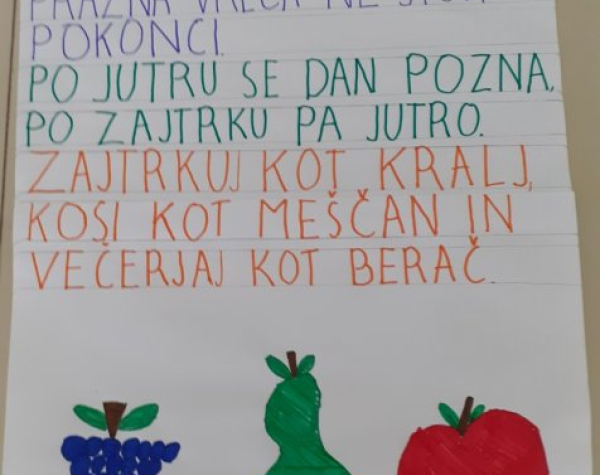 PRAZNA VREČA NE STOJI
POKONCI.
PO JUTRU SE DAN POZNA,
PO ZAJTRKU PA JUTRO.
ZAJTRKUJ KOT KRALJ,
KOSI KOT MEŠČAN IN
VEČERJAJ KOT BERAČ.